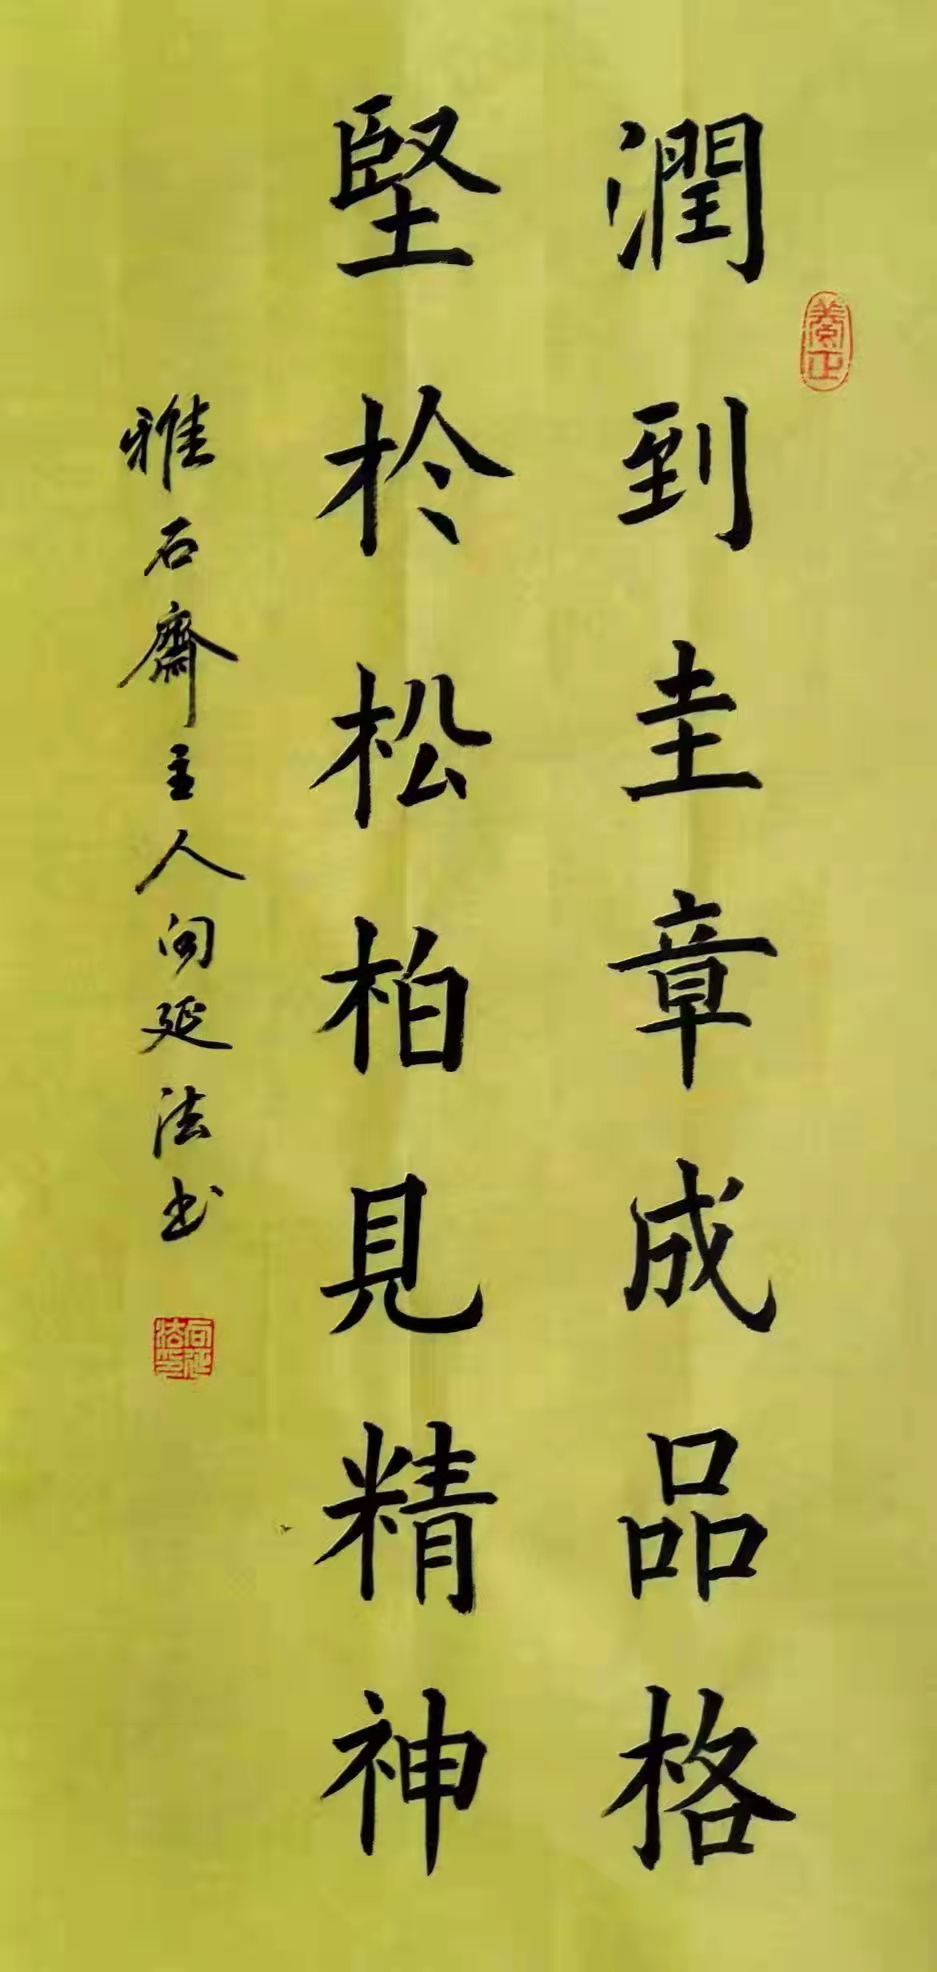 潤到圭章成品格
堅於松柏見精神
雅石齋主人向延法书
養正
向延法印